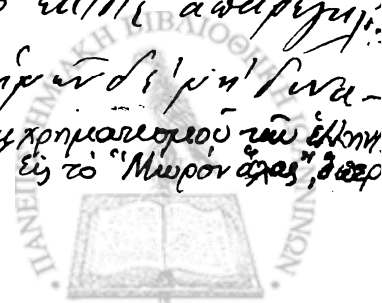 ἡμῶν δὲ μὴ δυνα-
χρηματισμοῦ τῶν ἑλλην
εἰς τὸ "Μωρὸν ἅλας", ὅπερ
ΠΑΝΕΠΙΣΤΗΜΙΑΚΗ ΒΙΒΛΙΟΘΗΚΗ ΙΩΑΝΝΙΝΩΝ